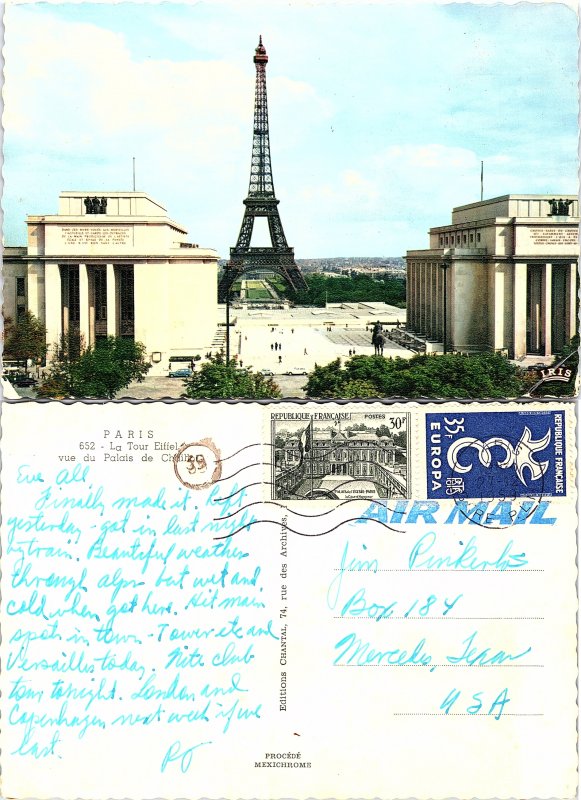 IRIS
PARIS
652 - La Tour Eiffel
vue du Palais de Chaillot
39
REPUBLIQUE FRANÇAISE POSTES 30F
PALAIS DE L'ELYSEE-PARIS
REPUBLIQUE FRANÇAISE
35F
EUROPA
AIR MAIL
Eve All
Finally made it. Left
yesterday - got in last night
by train. Beautiful weather
through alps but wet and
cold when got here. Hit main
spots in town - Tower etc and
Versailles today. Nite club
tour tonight. London and
Copenhagen next week if we
last.
PO
Editions CHANTAL, 74, rue des Archives,
Jim Pinkerton
Box 184
Mercedes, Texas
USA
PROCÉDÉ
MEXICHROME